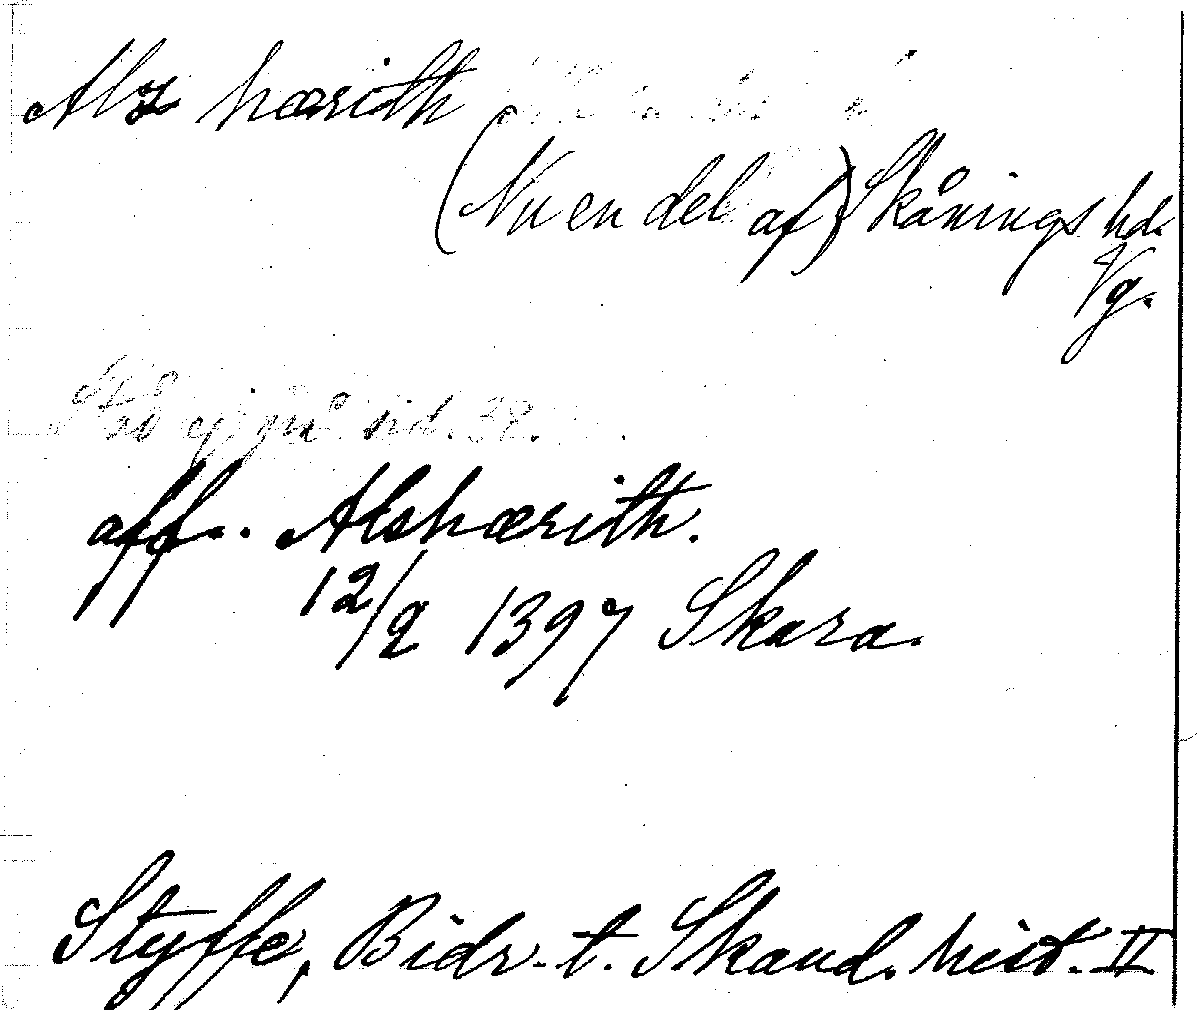 Alz hærith
(Nu en del af) Skånings hd.
Vg.
Står ej på sid. 38.
aff. Alshærith.
12/2 1397 Skara.
Styffe, Bidr. t. Skand. hist. II